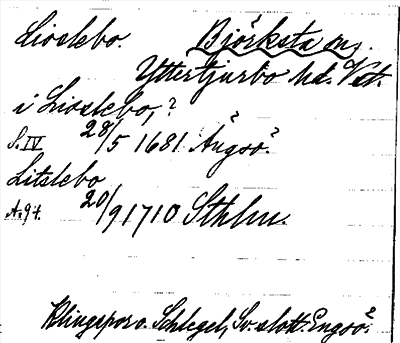 Lioslebo. Björksta sn,
Yttertjurbo hd. Vstm.
i Lioslebo,?
S. IV 28/5 1681 Ängsö?
Litslebo
A. 9 t. 20/9 1710 Sthlm.
Klingspor o. Schlegel, Sv. slott. Engsö?